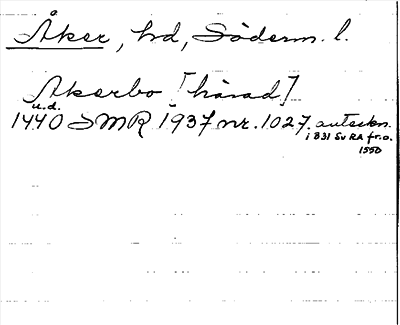 Åker, hd, Söderm. l.
Akerbo [härad]
u.d.
1440 SMR 1937 nr. 1027. anteckn.
i B31 Sv RA fr. o.
1550